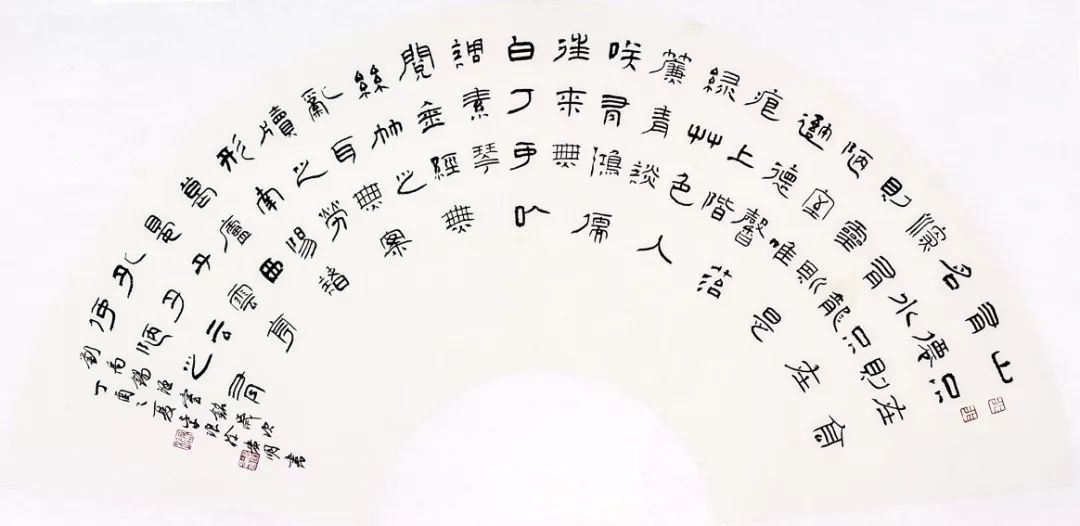 山不在高
有僊則
名水不在
深有龍
則靈斯是
陋室唯
德馨苔
痕上階
綠艸色入
簾青談
笑有鴻儒
往來無
白丁可以
調素琴
閱金經無
絲竹之
亂耳無案
牘之勞
形南陽諸
葛廬西
蜀子雲亭
孔子云
何陋之有
劉禹錫陋室銘歲次
丁酉之夏